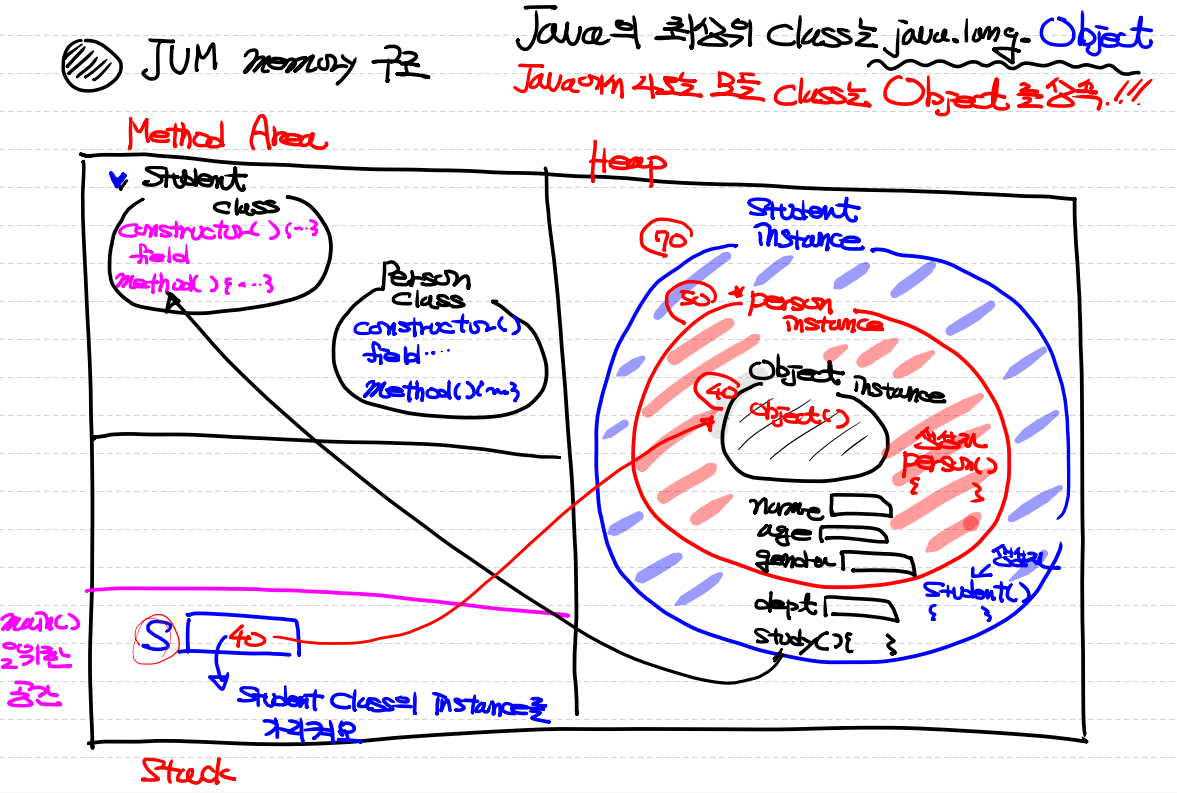 JVM memory 구조
Java의 최상위 class는 java.lang.Object
Java에서 나오는 모든 class는 Object를 상속.!!!
Method Area
Heap
Student
class
constructor() {...}
field
Method() {...}
Person
class
constructor()
field...
Method() {...}
Student
instance
70
50
* person
instance
40
Object
instance
Object()
생성자
person()
{ }
name
age
gender
생성자
Student()
{ }
dept
study() { }
main()
을 위한
공간
S
40
Student class의 instance를
가리켜요
Stack